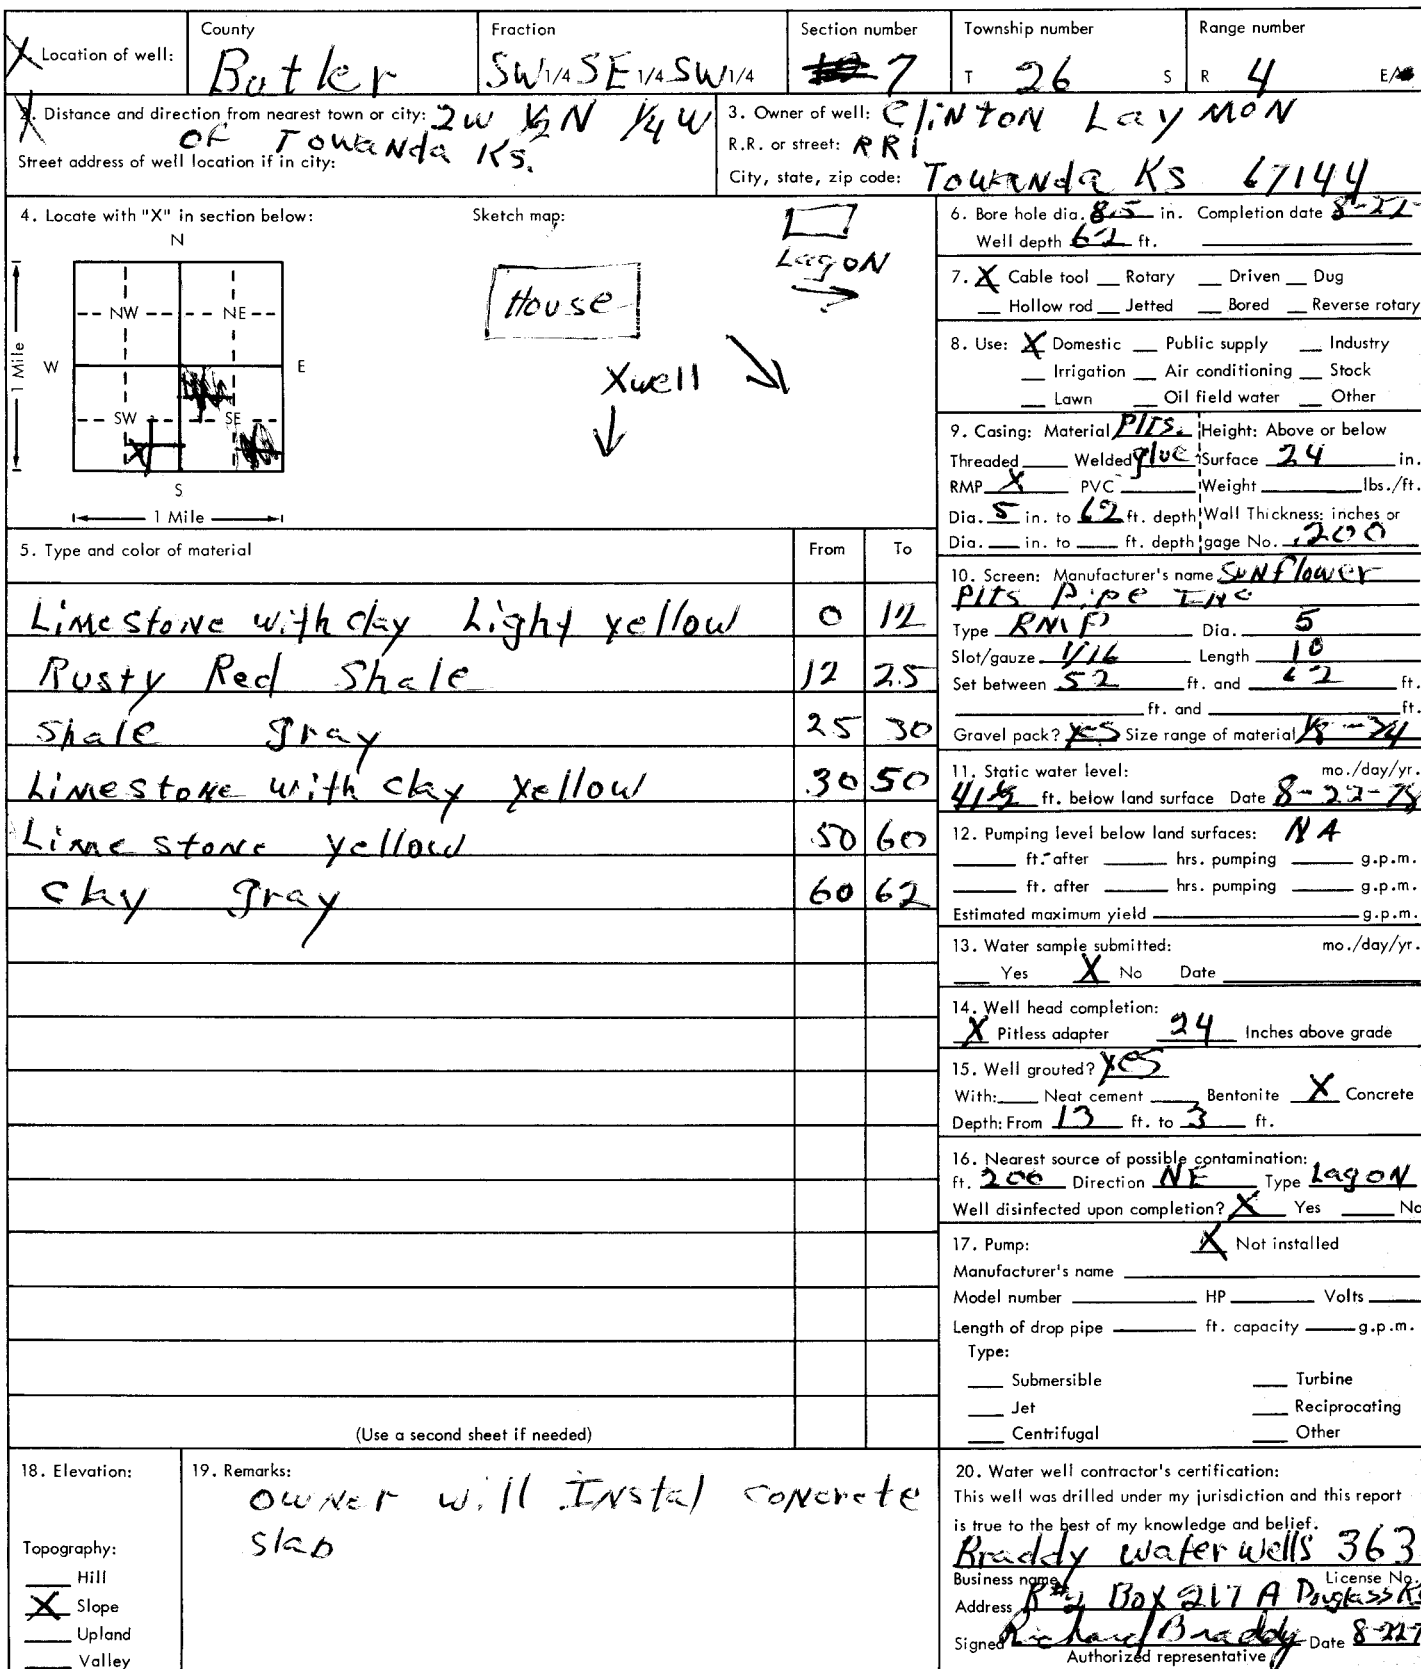 County Fraction Section number Township number Range number
Location of well: Butler SW 1/4 SE 1/4 SW 1/4 7 T 26 S R 4 E/
2. Distance and direction from nearest town or city: 2W ½ N ¼ W
of Towanda Ks.
Street address of well location if in city:
3. Owner of well: Clinton Laymon
R.R. or street: RR1
City, state, zip code: Towanda Ks 67144
4. Locate with "X" in section below:
N
NW NE
W E
SW SE
X
S
1 Mile
1 Mile
Sketch map:
Lagon
House
X well
5. Type and color of material From To
Limestone with clay Light yellow 0 12
Rusty Red Shale 12 25
Shale gray 25 30
Limestone with clay yellow 30 50
Lime stone yellow 50 60
Clay gray 60 62
(Use a second sheet if needed)
6. Bore hole dia. 8.5 in. Completion date 8-22-
Well depth 62 ft.
7. X Cable tool __ Rotary __ Driven __ Dug
__ Hollow rod __ Jetted __ Bored __ Reverse rotary
8. Use: X Domestic __ Public supply __ Industry
__ Irrigation __ Air conditioning __ Stock
__ Lawn __ Oil field water __ Other
9. Casing: Material Plts. Height: Above or below
Threaded __ Welded glue Surface 24 in.
RMP X PVC __ Weight __ lbs./ft.
Dia. 5 in. to 62 ft. depth Wall Thickness: inches or
Dia. __ in. to __ ft. depth gage No. .200
10. Screen: Manufacturer's name Sunflower
Plts Pipe Inc
Type RMP Dia. 5
Slot/gauze 1/16 Length 10
Set between 52 ft. and 62 ft.
__ ft. and __ ft.
Gravel pack? yes Size range of material 1/8 - 3/4
11. Static water level: mo./day/yr.
41½ ft. below land surface Date 8-22-78
12. Pumping level below land surfaces: NA
__ ft. after __ hrs. pumping __ g.p.m.
__ ft. after __ hrs. pumping __ g.p.m.
Estimated maximum yield __ g.p.m.
13. Water sample submitted: mo./day/yr.
__ Yes X No Date __
14. Well head completion:
X Pitless adapter 24 Inches above grade
15. Well grouted? yes
With: __ Neat cement __ Bentonite X Concrete
Depth: From 13 ft. to 3 ft.
16. Nearest source of possible contamination:
ft. 200 Direction NE Type Lagon
Well disinfected upon completion? X Yes __ No
17. Pump: X Not installed
Manufacturer's name __
Model number __ HP __ Volts __
Length of drop pipe __ ft. capacity __ g.p.m.
Type:
__ Submersible __ Turbine
__ Jet __ Reciprocating
__ Centrifugal __ Other
18. Elevation:
Topography:
__ Hill
X Slope
__ Upland
__ Valley
19. Remarks:
owner will Instal concrete
slab
20. Water well contractor's certification:
This well was drilled under my jurisdiction and this report
is true to the best of my knowledge and belief.
Braddy water wells 363
Business name License No.
Address R#2 Box 217 A Douglass Ks
Signed Richard Braddy Date 8-22-7
Authorized representative